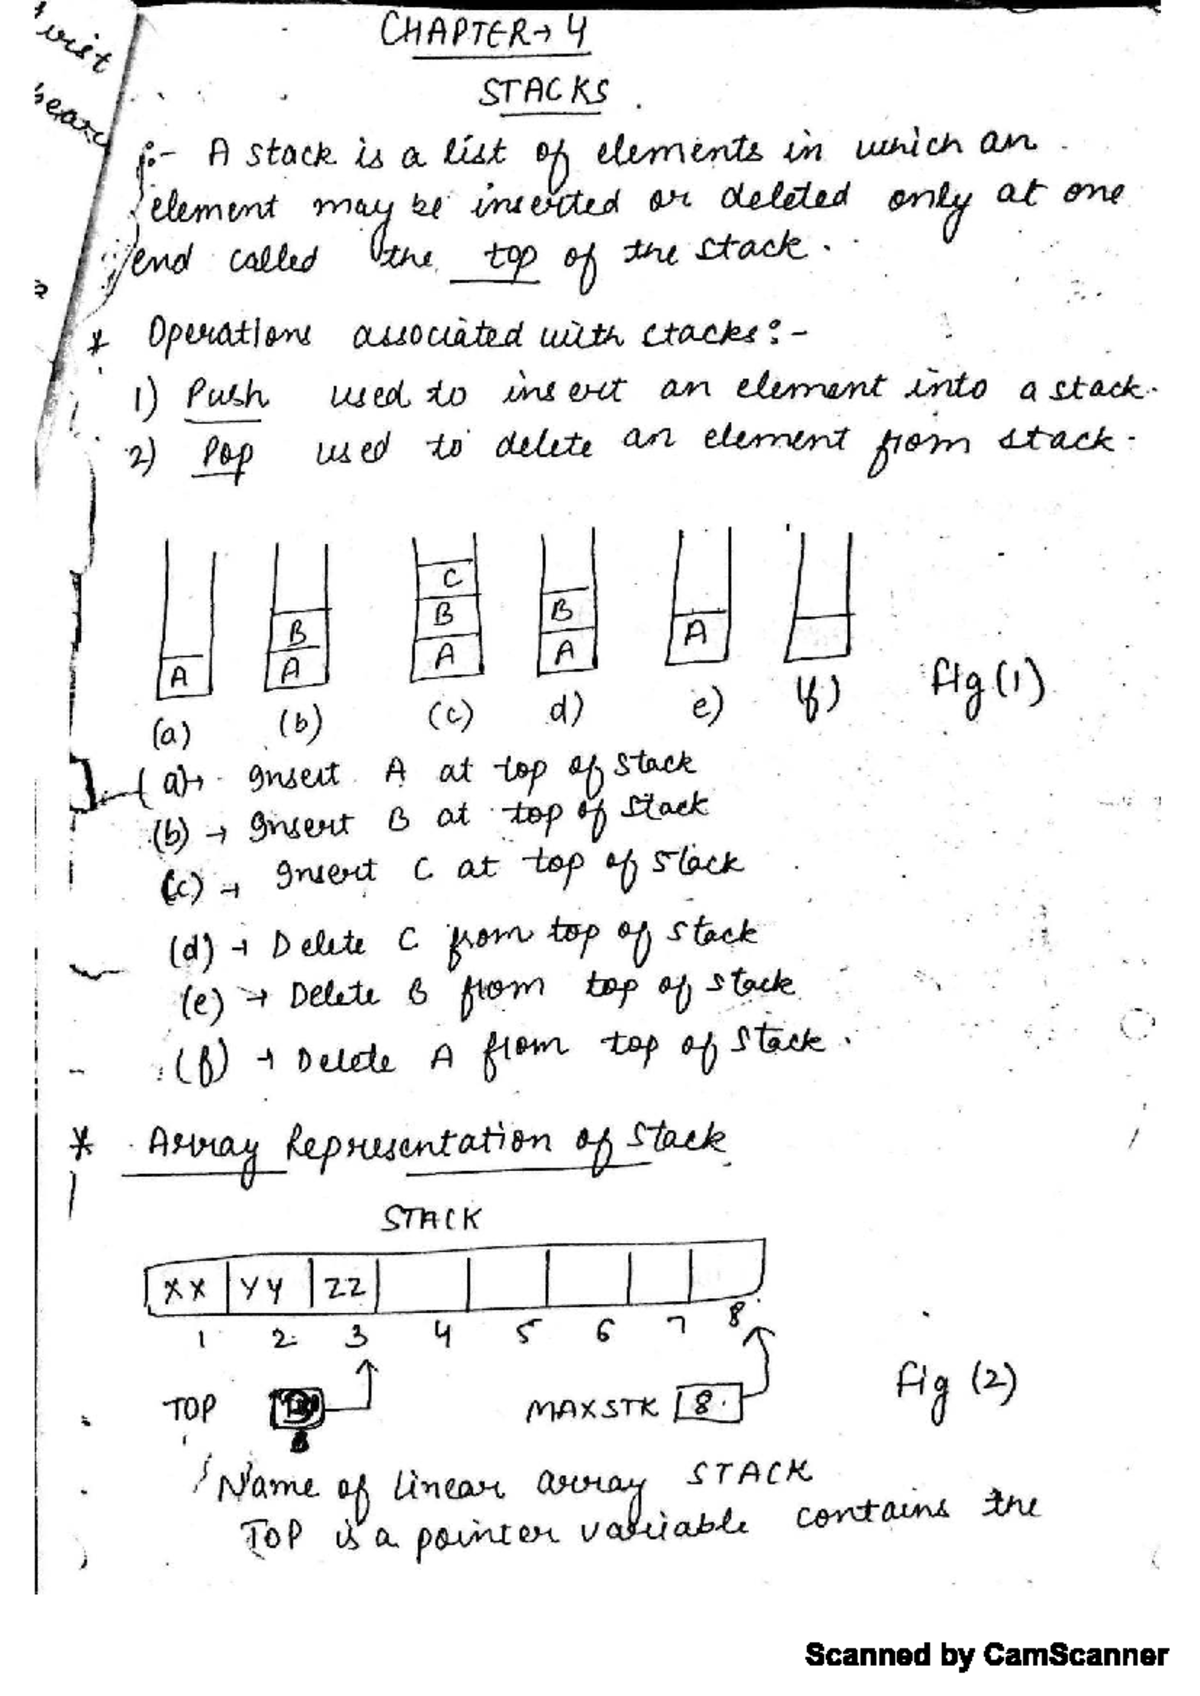 wist
searc
CHAPTER → 4
STACKS
:- A stack is a list of elements in which an
element may be inserted or deleted only at one
end called the top of the stack.
* Operations associated with stacks:-
1) Push used to insert an element into a stack.
2) Pop used to delete an element from stack.
C
B B B
B A A A
A A
(a) (b) (c) d) e) f) Fig (1)
(a) → Insert A at top of stack
(b) → Insert B at top of stack
(c) → Insert C at top of stack
(d) → Delete C from top of stack
(e) → Delete B from top of stack
(f) → Delete A from top of stack.
* Array Representation of Stack
STACK
XX YY ZZ
1 2 3 4 5 6 7 8
TOP MAXSTK 8 Fig (2)
Name of linear array STACK
TOP is a pointer variable contains the
Scanned by CamScanner